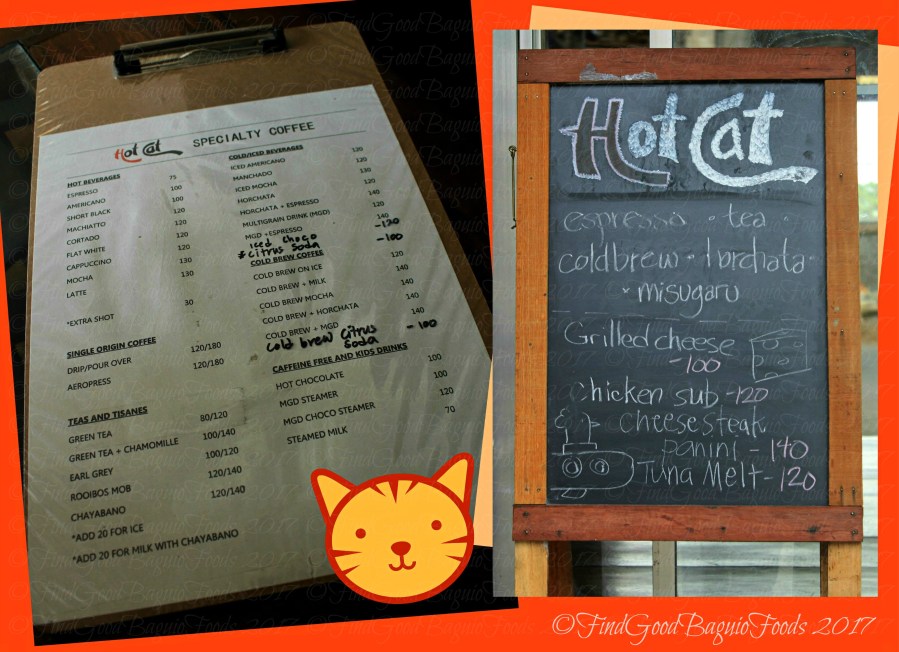 Hot Cat SPECIALTY COFFEE
HOT BEVERAGES
ESPRESSO 75
AMERICANO 100
SHORT BLACK 100
MACHIATTO 120
CORTADO 120
FLAT WHITE 120
CAPPUCCINO 120
MOCHA 130
LATTE 130
*EXTRA SHOT 30
SINGLE ORIGIN COFFEE
DRIP/POUR OVER 120/180
AEROPRESS 120/180
TEAS AND TISANES
GREEN TEA 80/120
GREEN TEA + CHAMOMILLE 100/140
EARL GREY 100/120
ROOIBOS MOB 120/140
CHAYABANO 120/140
*ADD 20 FOR ICE
*ADD 20 FOR MILK WITH CHAYABANO
COLD/ICED BEVERAGES
ICED AMERICANO 120
MANCHADO 120
ICED MOCHA 130
HORCHATA 120
HORCHATA + ESPRESSO 140
MULTIGRAIN DRINK (MGD) 120
MGD +ESPRESSO 140
iced choco -120
*citrus soda -100
COLD BREW COFFEE
COLD BREW ON ICE 120
COLD BREW + MILK 140
COLD BREW MOCHA 140
COLD BREW + HORCHATA 140
COLD BREW + MGD 140
cold brew citrus soda - 100
CAFFEINE FREE AND KIDS DRINKS
HOT CHOCOLATE 100
MGD STEAMER 100
MGD CHOCO STEAMER 120
STEAMED MILK 70
Hot Cat
espresso • tea •
coldbrew • horchata •
• misugaru
Grilled cheese
-100
Chicken sub -120
cheesesteak
panini - 140
Tuna Melt - 120
©FindGoodBaguioFoods 2017